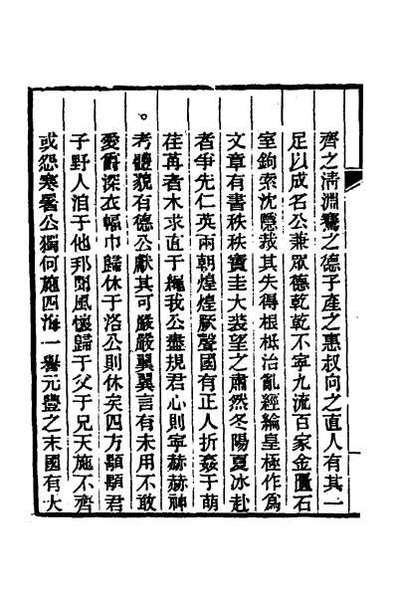 齊之淸淵騫之德子產之惠叔向之直人有其一
足以成名公兼眾德乾乾不寧九流百家金匱石
室鉤索沈隱裁其失得根柢治亂經綸皇極作爲
文章有書秩秩寶圭大裘望之肅然冬陽夏冰赴
者爭先仁英兩朝煌煌厥聲國有正人折姦于萌
荏苒者木求直于繩我公盡規君心則寧赫赫神
考體貌有德公猷其可嚴嚴翼翼言有未用不敢
愛爵深衣幅巾歸休于洛公則休矣四方顒顒君
子野人洎于他邦聞風懷歸于父于兄天施不齊
或怨寒暑公獨何施四海一譽元豐之末國有大